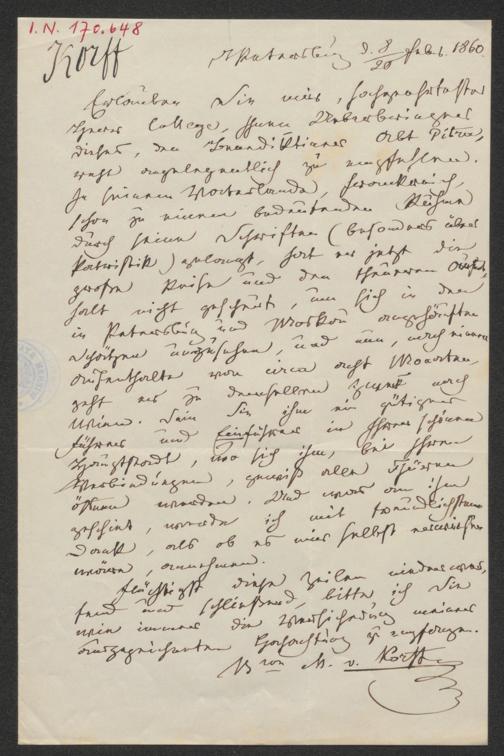 I.N. 170.648
Korff
St Petersburg d. 8/20 Febr. 1860.
Erlauben Sie mir, hochgeehrtester
Herr College, Ihnen Ueberbringer
dieses, den Benediktiner Abt Pitra,
recht angelegentlich zu empfehlen.
In seinem Vaterlande, Frankreich,
schon zu einem bedeutenden Ruhme
durch seine Schriften (besonders über
Patristik) gelangt, hat er jetzt die
große Reise und den theueren Aufent-
halt nicht gescheut, um sich in den
in Petersburg und Moskau angehäuften
Schätzen umzusehen, und nun, nach einem
Aufenthalte von circa acht Monaten,
geht er zu demselben Zweck nach
Wien. Sein Sie ihm ein gütiger
Führer und Einführer in Ihrer schönen
Hauptstadt, wo sich ihm, bei Ihren
Verbindungen, gewiß alle Thüren
öffnen werden. Und was an ihm
geschieht, werde ich mit freundlichstem
Dank, als ob es mir selbst erwiesen
wäre, annehmen.
Flüchtigst diese Zeilen niederwer-
fend und schließend, bitte ich Sie
wie immer die Versicherung meiner
ausgezeichneten Hochachtung zu empfangen.
Bron M. v. Korff